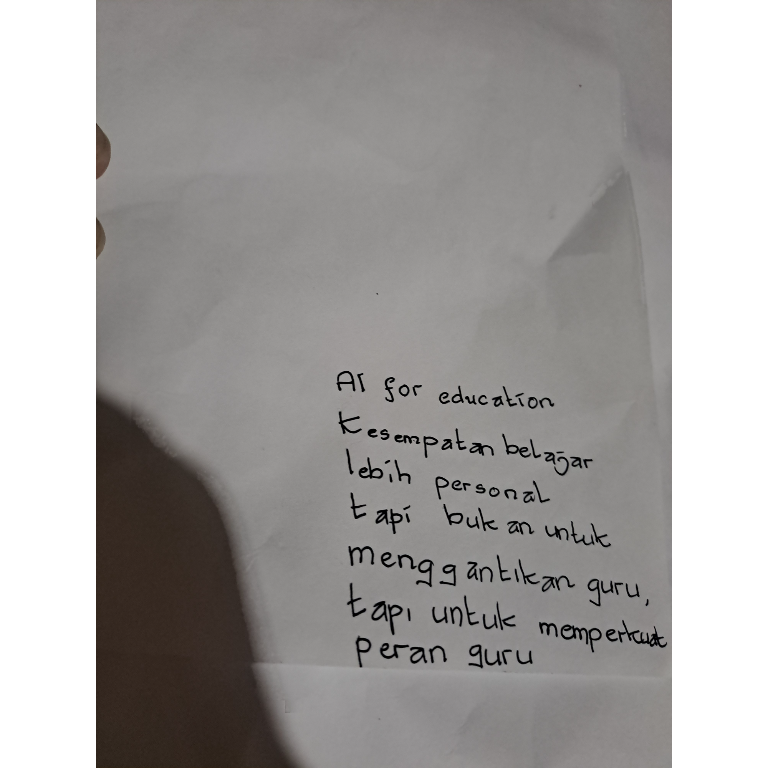 AI for education
Kesempatan belajar
lebih personal
tapi bukan untuk
menggantikan guru,
tapi untuk memperkuat
peran guru